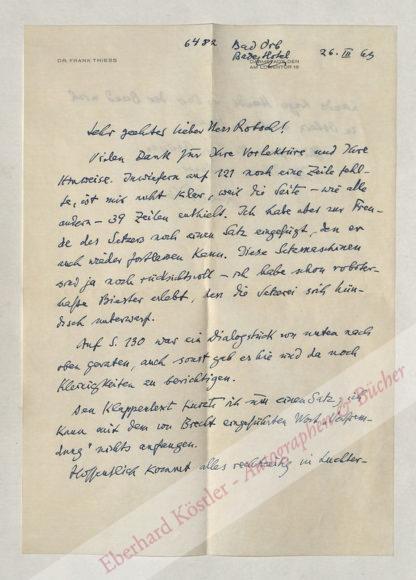 6482 Bad Orb
DR. FRANK THIESS
26. III 69
AM ELFENTOR 18
Sehr geehrter lieber Herr Rotsch!
Vielen Dank für Ihre Vorlektüre und Ihre
Hinweise. Inwiefern auf 121 noch eine Zeile fehl-
te, ist mir nicht klar, weil die Seite – wie alle
andern – 39 Zeilen enthielt. Ich habe aber zur Freu-
de des Setzers noch einen Satz eingefügt, den er
auch wieder fortlassen kann. Diese Setzmaschinen
sind ja noch rücksichtsvoll – ich habe schon
hafte Biester erlebt, denen die Setzerei sich hün-
disch unterwarf.
Auf S. 130 war ein Dialogstück von unten nach
oben geraten, auch sonst gab es hie und da noch
Kleinigkeiten zu berichtigen.
Den Klappentext kürzte ich um einen Satz, ich
kann mit dem von Brecht eingeführten Wort "Verfrem-
dung" nichts anfangen.
Hoffentlich kommt alles rechtzeitig in Luchter-
Eberhard Köstler - Autographen & Bücher